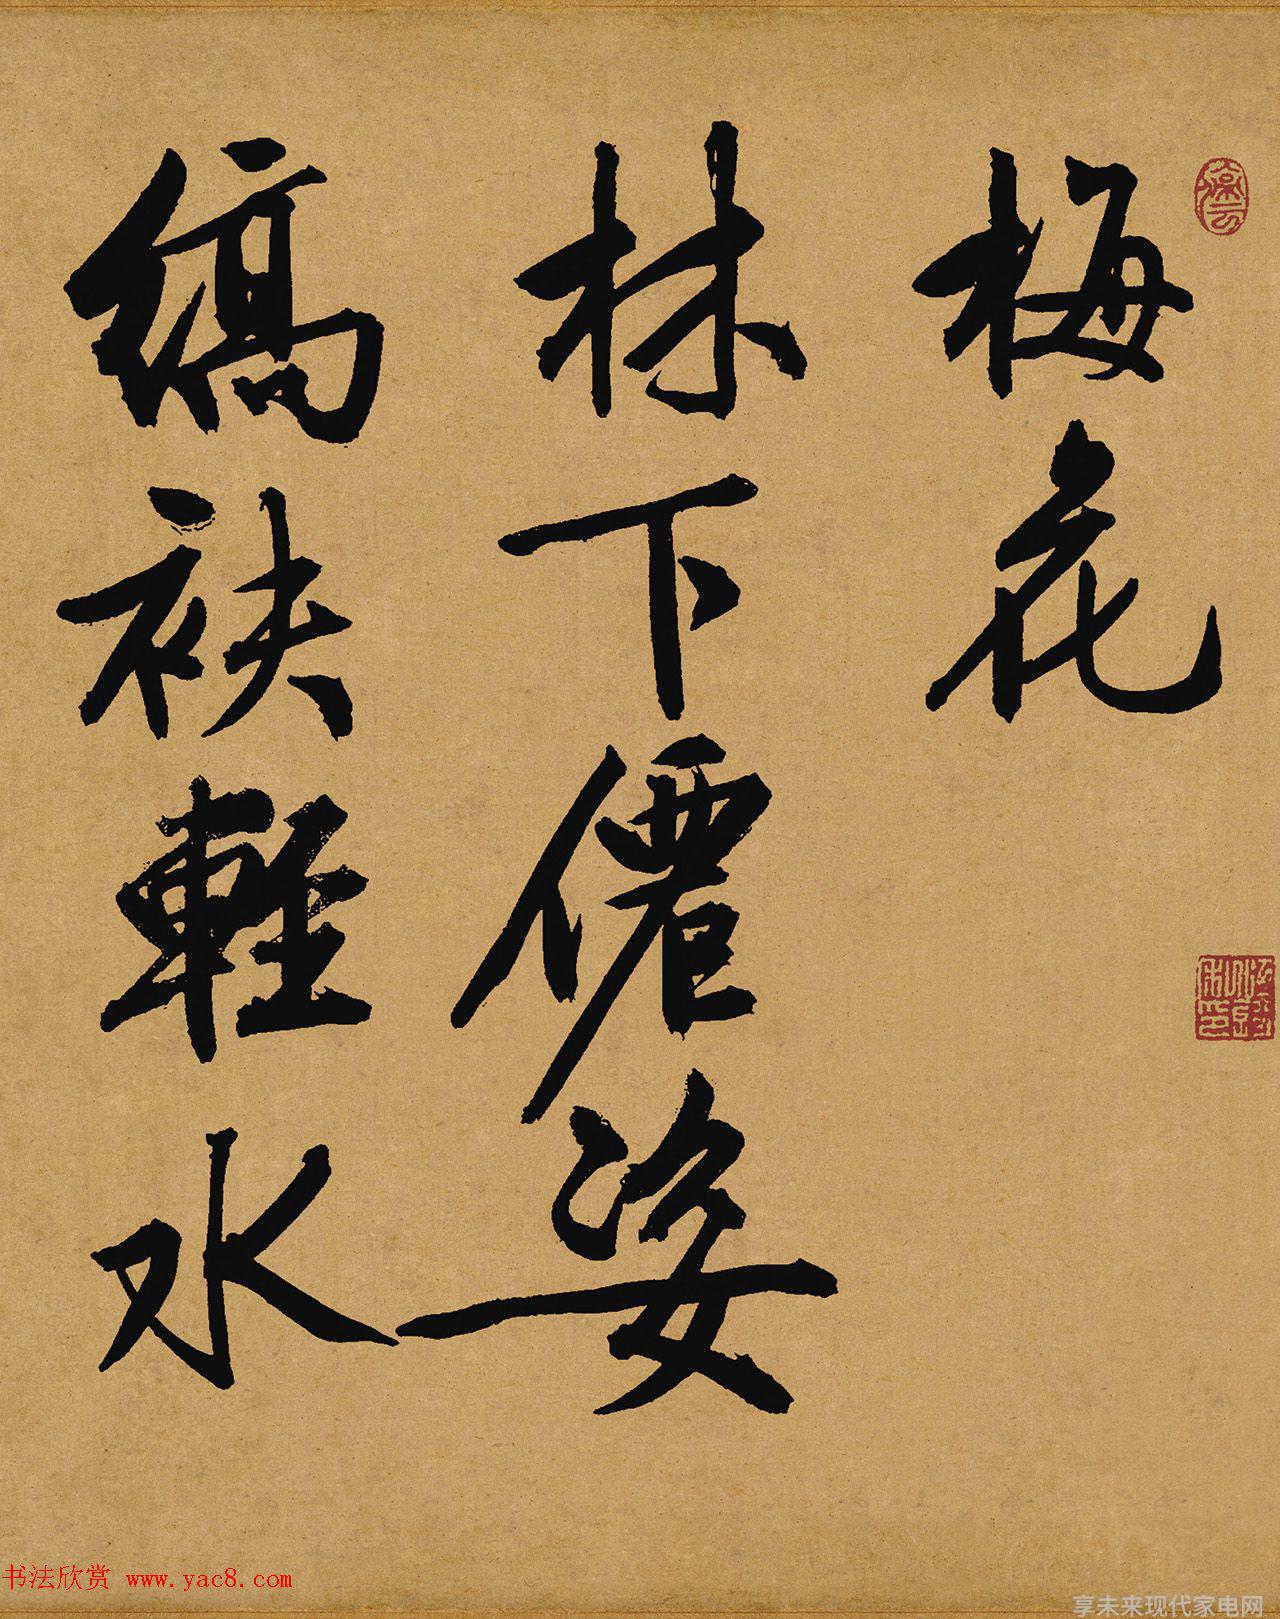 梅花
林下僊姿
縞袂輕水
书法欣赏 www.yac8.com
享未来现代家电网